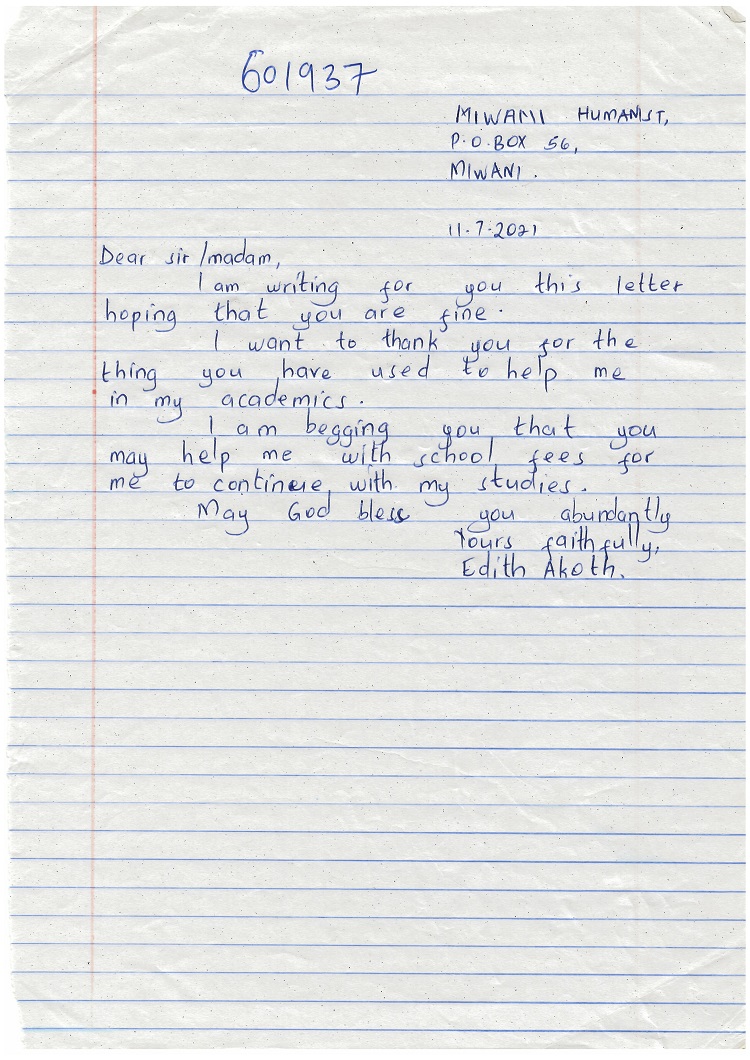 601937
MIWAMI HUMANIST,
P.O.BOX 56,
MIWANI.
11-7-2021
Dear sir/madam,
I am writing for you this letter
hoping that you are fine.
I want to thank you for the
thing you have used to help me
in my academics.
I am begging you that you
may help me with school fees for
me to continue with my studies.
May God bless you abundantly
Yours faithfully,
Edith Akoth.